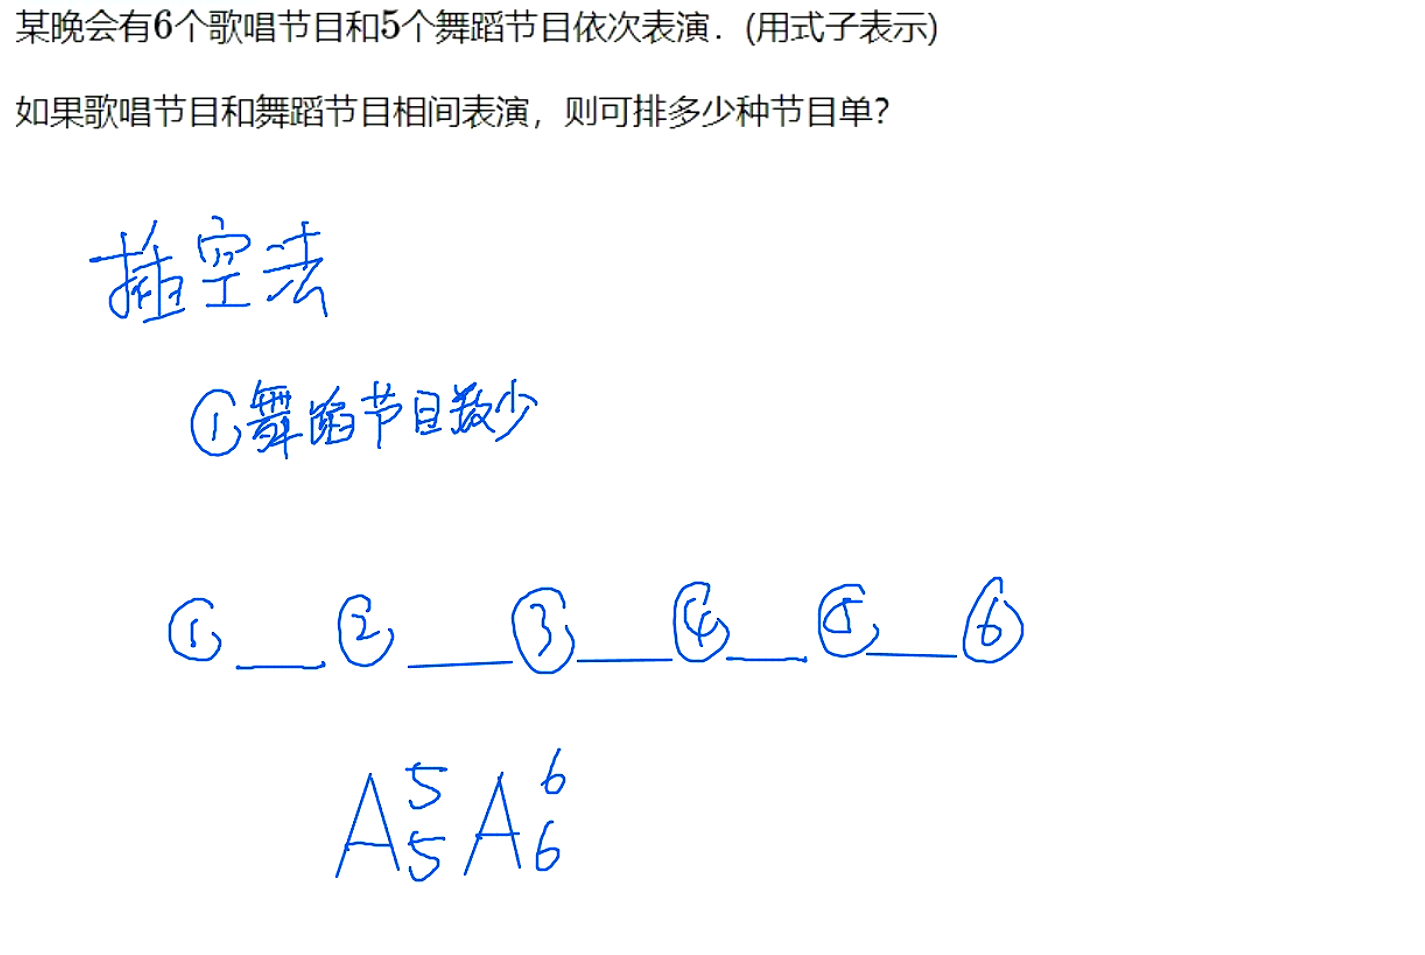 某晚会有6个歌唱节目和5个舞蹈节目依次表演．(用式子表示)
如果歌唱节目和舞蹈节目相间表演，则可排多少种节目单?
插空法
①舞蹈节目数少
① __ ② __ ③ __ ④ __ ⑤ __ ⑥
A⁵₅A⁶₆